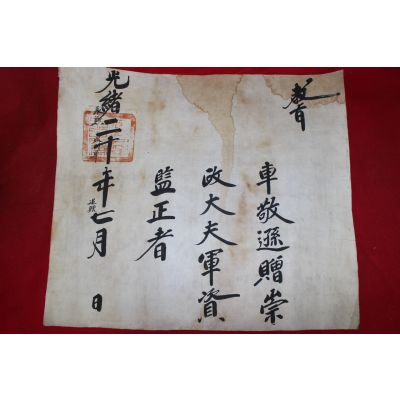 敎旨
車敬遜贈崇
政大夫軍資
監正者
光緖二十年七月 日
追贈